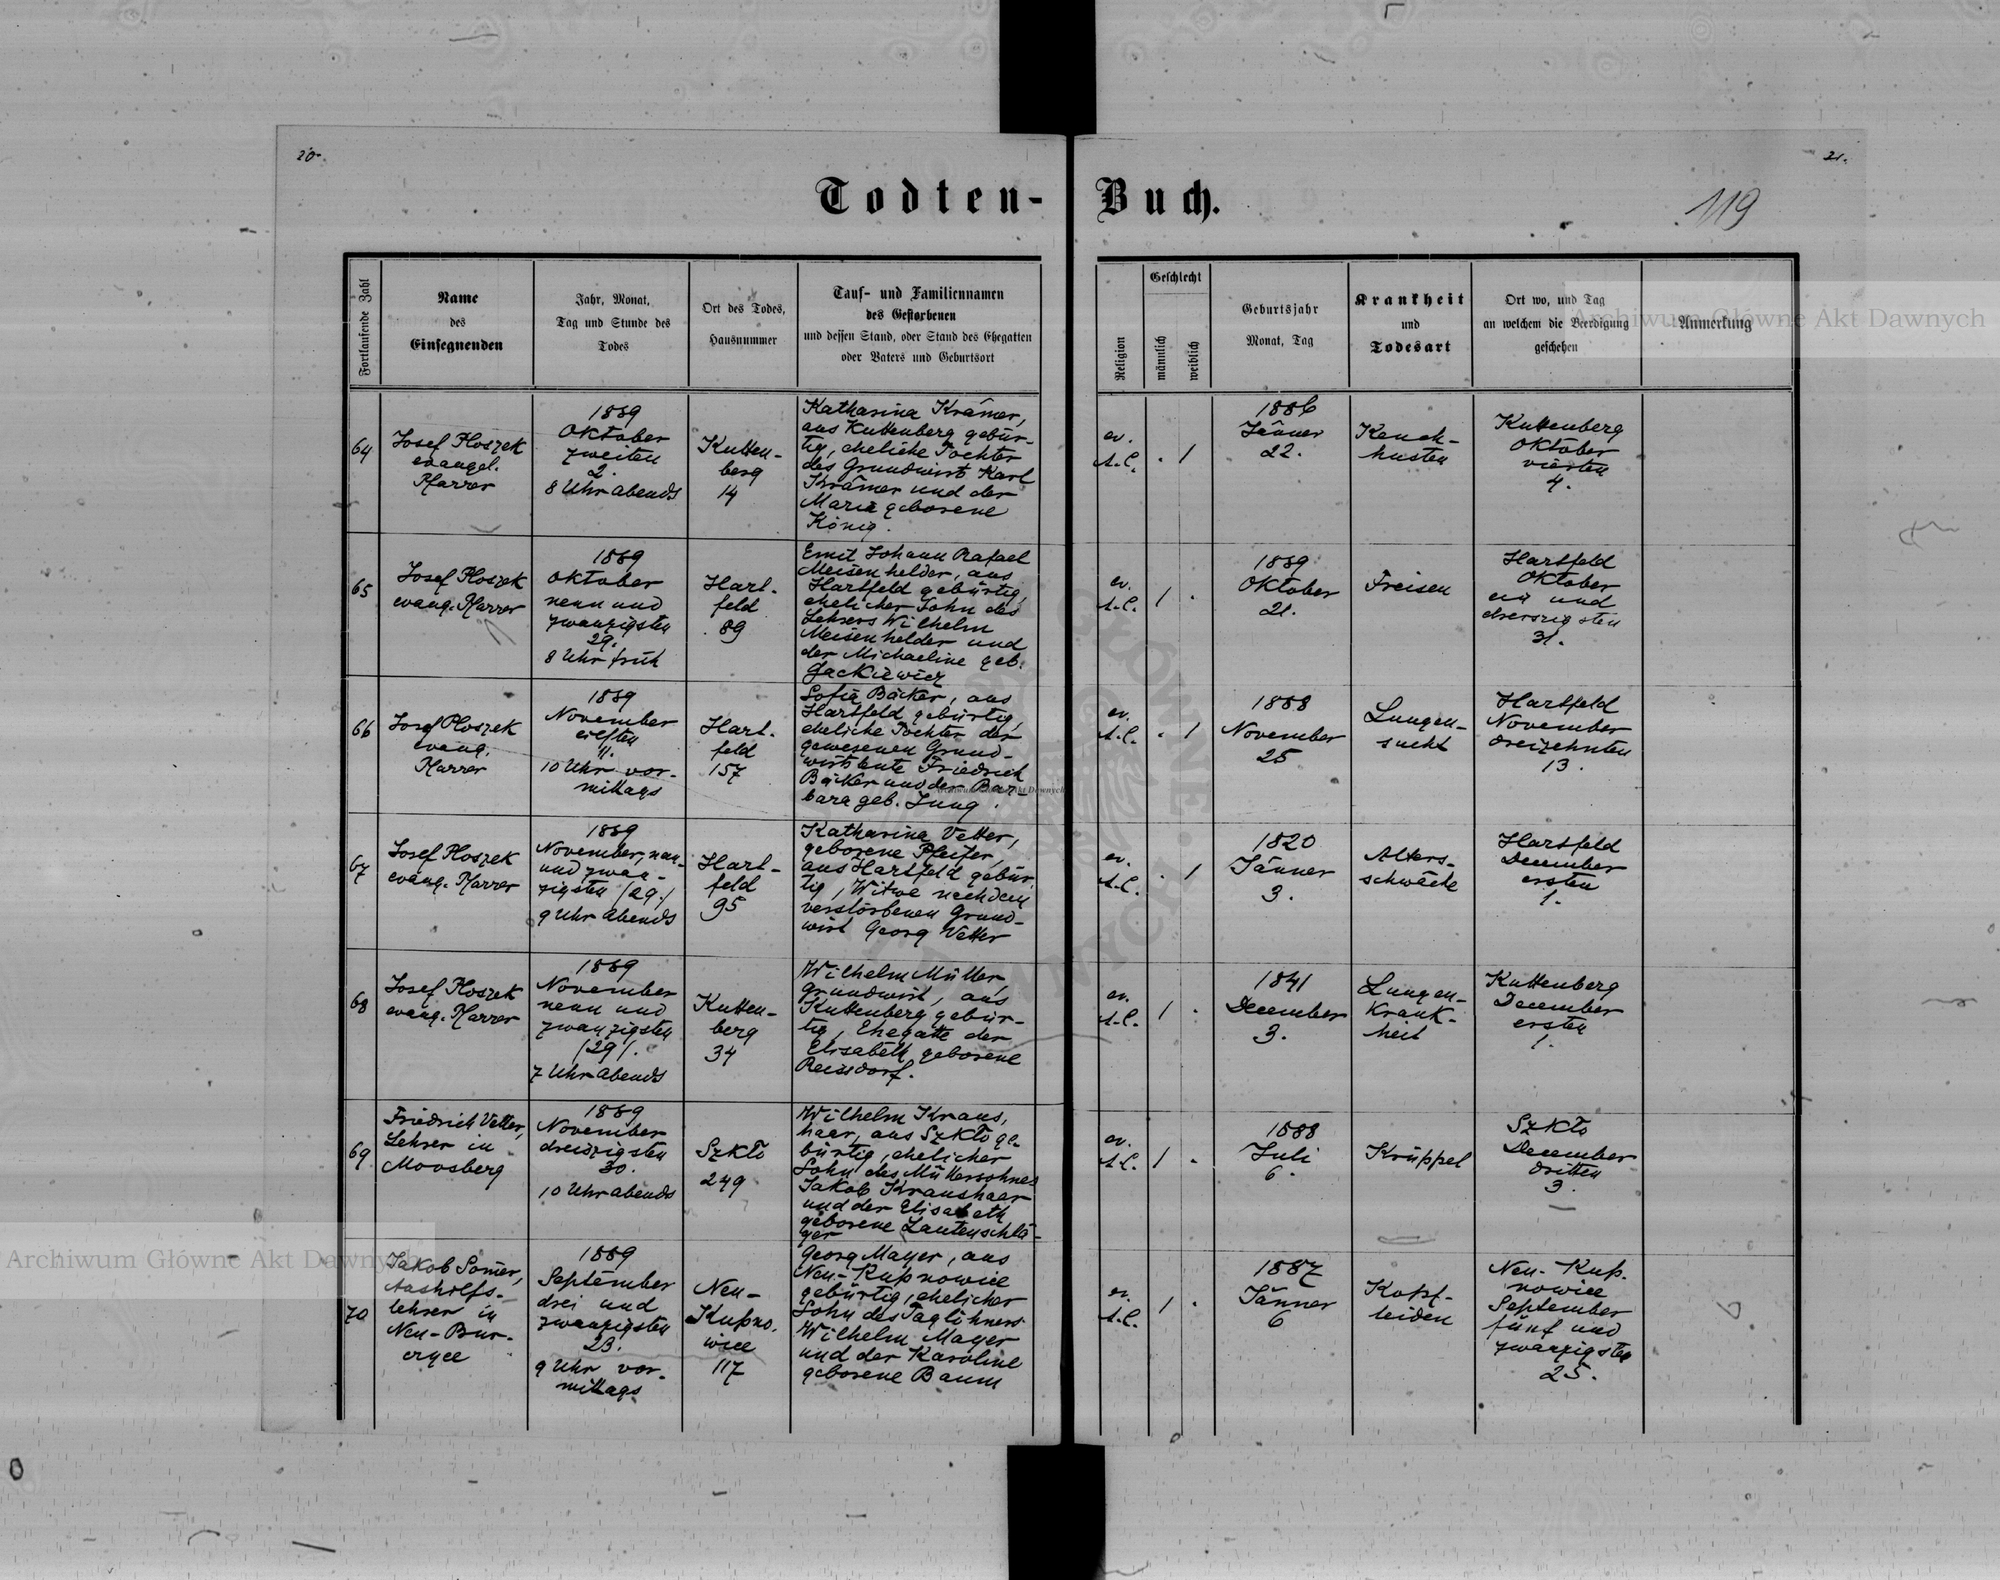 20.
21.
Todten-Buch.
119
Fortlaufende Zahl
Name
des
Einsegnenden
Jahr, Monat,
Tag und Stunde des
Todes
Ort des Todes,
Hausnummer
Tauf- und Familiennamen
des Gestorbenen
und dessen Stand, oder Stand des Ehegatten
oder Vaters und Geburtsort
Religion
Geschlecht
männlich
weiblich
Geburtsjahr
Monat, Tag
Krankheit
und
Todesart
Ort wo, und Tag
an welchem die Beerdigung
geschehen
Anmerkung
64
Josef Ploszek
evangel.
Pfarrer
1889
Oktober
zweiten
2.
8 Uhr abends
Kutten-
berg
14
Katharina Krämer,
aus Kuttenberg gebür-
tig, eheliche Tochter
des Grundwirt Karl
Krämer und der
Marie geborene
König.
ev.
A.C.
. 1
1886
Jänner
22.
Keuch-
husten
Kuttenberg
Oktober
vierten
4.
65
Josef Ploszek
evang. Pfarrer
1889
Oktober
neun und
zwanzigsten
29.
8 Uhr früh
Hart-
feld
89
Emil Johann Rafael
Meisenhelder, aus
Hartfeld gebürtig,
ehelicher Sohn des
Lehrers Wilhelm
Meisenhelder und
der Michaeline geb.
Jackiewicz
ev.
A.C.
1 .
1889
Oktober
21.
Freisen
Hartfeld
Oktober
ein und
dreiszigsten
31.
66
Josef Ploszek
evang.
Pfarrer
1889
November
eilften
11.
10 Uhr vor-
mittags
Hart-
feld
157
Sofia Bäcker, aus
Hartfeld gebürtig,
eheliche Tochter der
gewesenen Grund-
wirtsleute Friedrich
Bäcker und der Bar-
bara geb. Jung.
ev.
A.C.
. 1
1888
November
25
Lungen-
sucht
Hartfeld
November
dreizehnten
13.
67
Josef Ploszek
evang. Pfarrer
1889
November, neun
und zwan-
zigsten /29./
9 Uhr abends
Hart-
feld
95
Katharina Vetter,
geborene Pfeifer,
aus Hartfeld gebür-
tig, Witwe nach dem
verstorbenen Grund-
wirt Georg Vetter
ev.
A.C.
. 1
1820
Jänner
3.
Alters-
schwäche
Hartfeld
December
ersten
1.
68
Josef Ploszek
evang. Pfarrer
1889
November
neun und
zwanzigsten
/29/.
7 Uhr abends
Kutten-
berg
34
Wilhelm Müller,
Grundwirt, aus
Kuttenberg gebür-
tig, Ehegatte der
Elisabeth geborene
Reissdorf.
ev.
A.C.
1 .
1841
December
3.
Lungen-
Krank-
heit
Kuttenberg
December
ersten
1.
69
Friedrich Vetter,
Lehrer in
Moosberg
1889
November
dreiszigsten
30.
10 Uhr abends
Szkło
249
Wilhelm Kraus,
haar, aus Szkło ge-
bürtig, ehelicher
Sohn des Müllersohnes
Jakob Kraushaar
und der Elisabeth
geborene Lautenschlä-
ger
ev.
A.C.
1 .
1888
Juli
6.
Krüppel
Szkło
December
dritten
3.
70
Jakob Somer,
Aushilfs-
lehrer in
Neu-Bur-
czyce
1889
September
drei und
zwanzigsten
23.
9 Uhr vor-
mittags
Neu-
Kupno-
wice
117
Georg Mayer, aus
Neu-Kupnowice
gebürtig, ehelicher
Sohn des Taglöhners
Wilhelm Mayer
und der Karoline
geborene Baum
ev.
A.C.
1 .
1887
Jänner
6
Kopf-
leiden
Neu-Kup-
nowice
September
fünf und
zwanzigsten
25.
Archiwum Główne Akt Dawnych
Archiwum Główne Akt Dawnych
Archiwum Główne Akt Dawnych